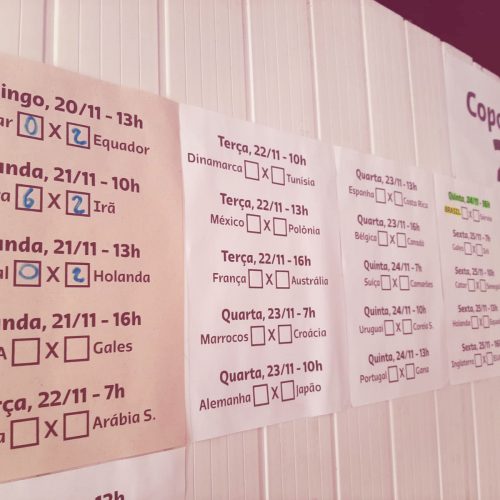 ingo, 20/11 - 13h
ar 0 X 2 Equador
unda, 21/11 - 10h
ra 6 X 2 Irã
unda, 21/11 - 13h
al 0 X 2 Holanda
unda, 21/11 - 16h
A X Gales
rça, 22/11 - 7h
a X Arábia S.
13h
Terça, 22/11 - 10h
Dinamarca X Tunisia
Terça, 22/11 - 13h
México X Polônia
Terça, 22/11 - 16h
França X Austrália
Quarta, 23/11 - 7h
Marrocos X Croácia
Quarta, 23/11 - 10h
Alemanha X Japão
Quarta, 23/11 - 13h
Espanha X Costa Rica
Quarta, 23/11 - 16h
Bélgica X Canadá
Quinta, 24/11 - 7h
Suiça X Camarões
Quinta, 24/11 - 10h
Uruguai X Coréia S.
Quinta, 24/11 - 13h
Portugal X Gana
Copa
Quinta, 24/11 - 16h
BRASIL X Sérvia
Sexta, 25/11 - 7h
Gales X Irã
Sexta, 25/11 - 10h
Catar X Senegal
Sexta, 25/11 - 13h
Holanda X
Sexta, 25/11 - 16h
Inglaterra X